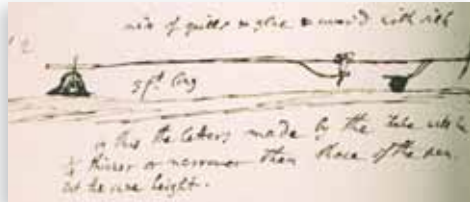 of quills & glue & cover'd with silk
5 ft. long
in this the letters made by the
thinner or narrower than those of the pen
but the same height.